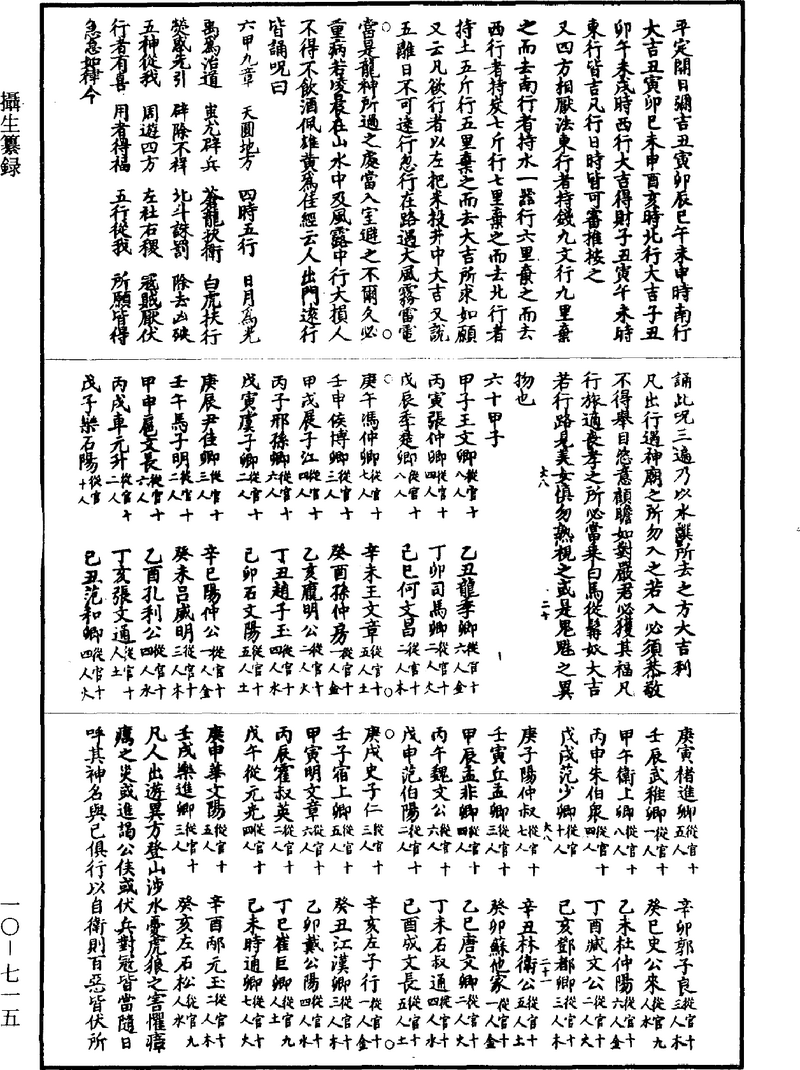 平定開日彌吉丑寅卯辰巳午未申時南行
大吉丑寅卯巳未申酉亥時北行大吉子丑
卯午未戌時西行大吉得財子丑寅午未時
東行皆吉凡行日時皆可審推按之
又四方相厭法東行者持錢九文行九里棄
之而去南行者持水一器行六里棄之而去
西行者持炭七斤行七里棄之而去北行者
持土五斤行五里棄之而去大吉所求如願
又云凡欲行者以左把米投井中大吉又說
五離日不可遠行忽行在路遇大風霧雷電
當是龍神所過之處當入室避之不爾久必
重病若凌晨在山水中及風露中行大損人
不得不飲酒佩雄黃為佳經云人出門遠行
皆誦呪曰
六甲九章 天圓地方 四時五行 日月為光
禹為治道 蚩尤辟兵 蒼龍扶衛 白虎扶行
熒惑先引 辟除不祥 北斗誅罰 除去凶殃
五神從我 周遊四方 左社右稷 寇賊厭伏
行者有喜 用者得福 五行從我 所願皆得
急急如律令
誦此呪三遍乃以水噀所去之方大吉利
凡出行遇神廟之所勿入之若入必須恭敬
不得舉目恣意顧瞻如對嚴君必獲其福凡
行旅適喪孝之所必當乘白馬從髯奴大吉
若行路見美女慎勿熟視之或是鬼魅之異
物也
六十甲子
甲子王文卿從官十八人 乙丑龍季卿從官十六人金
丙寅張仲卿從官十四人 丁卯司馬卿從官十二人火
戊辰季楚卿從官十八人 己巳何文昌從官十二人木
庚午馮仲卿從官十七人 辛未王文章從官十五人土
壬申侯博卿從官十三人 癸酉孫仲房從官十一人金
甲戌展子江從官十四人 乙亥龐明公從官十二人火
丙子邢孫卿從官十六人 丁丑趙子玉從官十四人水
戊寅虞子卿從官十二人 己卯石文陽從官十五人土
庚辰尹佳卿從官十三人 辛巳陽仲公從官十一人金
壬午馬子明從官十二人 癸未呂威明從官十三人木
甲申扈文長從官十六人 乙酉孔利公從官十四人水
丙戌車元升從官十二人 丁亥張文通從官十人土
戊子樂石陽從官十人 己丑范和卿從官十四人火
庚寅褚進卿從官十五人 辛卯郭子良從官十三人木
壬辰武稚卿從官十一人 癸巳史公來從官九人水
甲午衛上卿從官十八人 乙未杜仲陽從官十六人金
丙申朱伯眾從官十四人 丁酉臧文公從官十二人火
戊戌范少卿從官十人 己亥鄧都卿從官十三人木
庚子陽仲叔從官十七人 辛丑林衛公從官十五人土
壬寅丘孟卿從官十三人 癸卯蘇他家從官十一人金
甲辰孟非卿從官十四人 乙巳唐文卿從官十二人火
丙午魏文公從官十六人 丁未石叔通從官十四人水
戊申范伯陽從官十二人 己酉成文長從官十五人土
庚戌史子仁從官十三人 辛亥左子行從官十一人金
壬子宿上卿從官十五人 癸丑江漢卿從官十三人木
甲寅明文章從官十六人 乙卯戴公陽從官十四人水
丙辰霍叔英從官十二人 丁巳崔巨卿從官九人土
戊午從元光從官十四人 己未時通卿從官十七人火
庚申華文陽從官十五人 辛酉邴元玉從官十二人木
壬戌樂進卿從官十三人 癸亥左石松從官九人水
凡人出遊異方登山涉水憂虎狼之害懼瘴
癘之災或進謁公侯或伏兵對寇皆當隨日
呼其神名與已俱行以自衛則百惡皆伏所
大八 二十
大八 二十一
攝生纂録
一〇—七一五